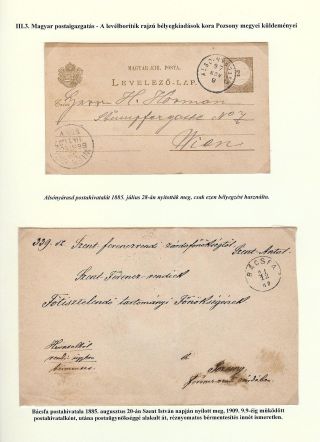 III.3. Magyar postaigazgatás - A levélboríték rajzú bélyegkiadások kora Pozsony megyei küldeményei
MAGYAR-KIR. POSTA.
LEVELEZŐ-LAP.
2
Herrn H. Horman
Stumpfergasse No 7
Wien
Alsónyárasd postahivatalát 1885. július 28-án nyitották meg, csak ezen bélyegzést használta.
Szent ferenczrendi zárdafőnökségtől
Szent-Antal
BÁCSFA
Szent Ferencz-rendiek
tartományi Főnökségének
Hivatalból
rendi ügyben
bérmentes
Pozsony
Bácsfa postahivatala 1885. augusztus 20-án Szent István napján nyílott meg, 1909. 9.9-éig működött
postahivatalként, utána postaügynökséggé alakult át, réznyomatos bérmentesítés innét ismeretlen.